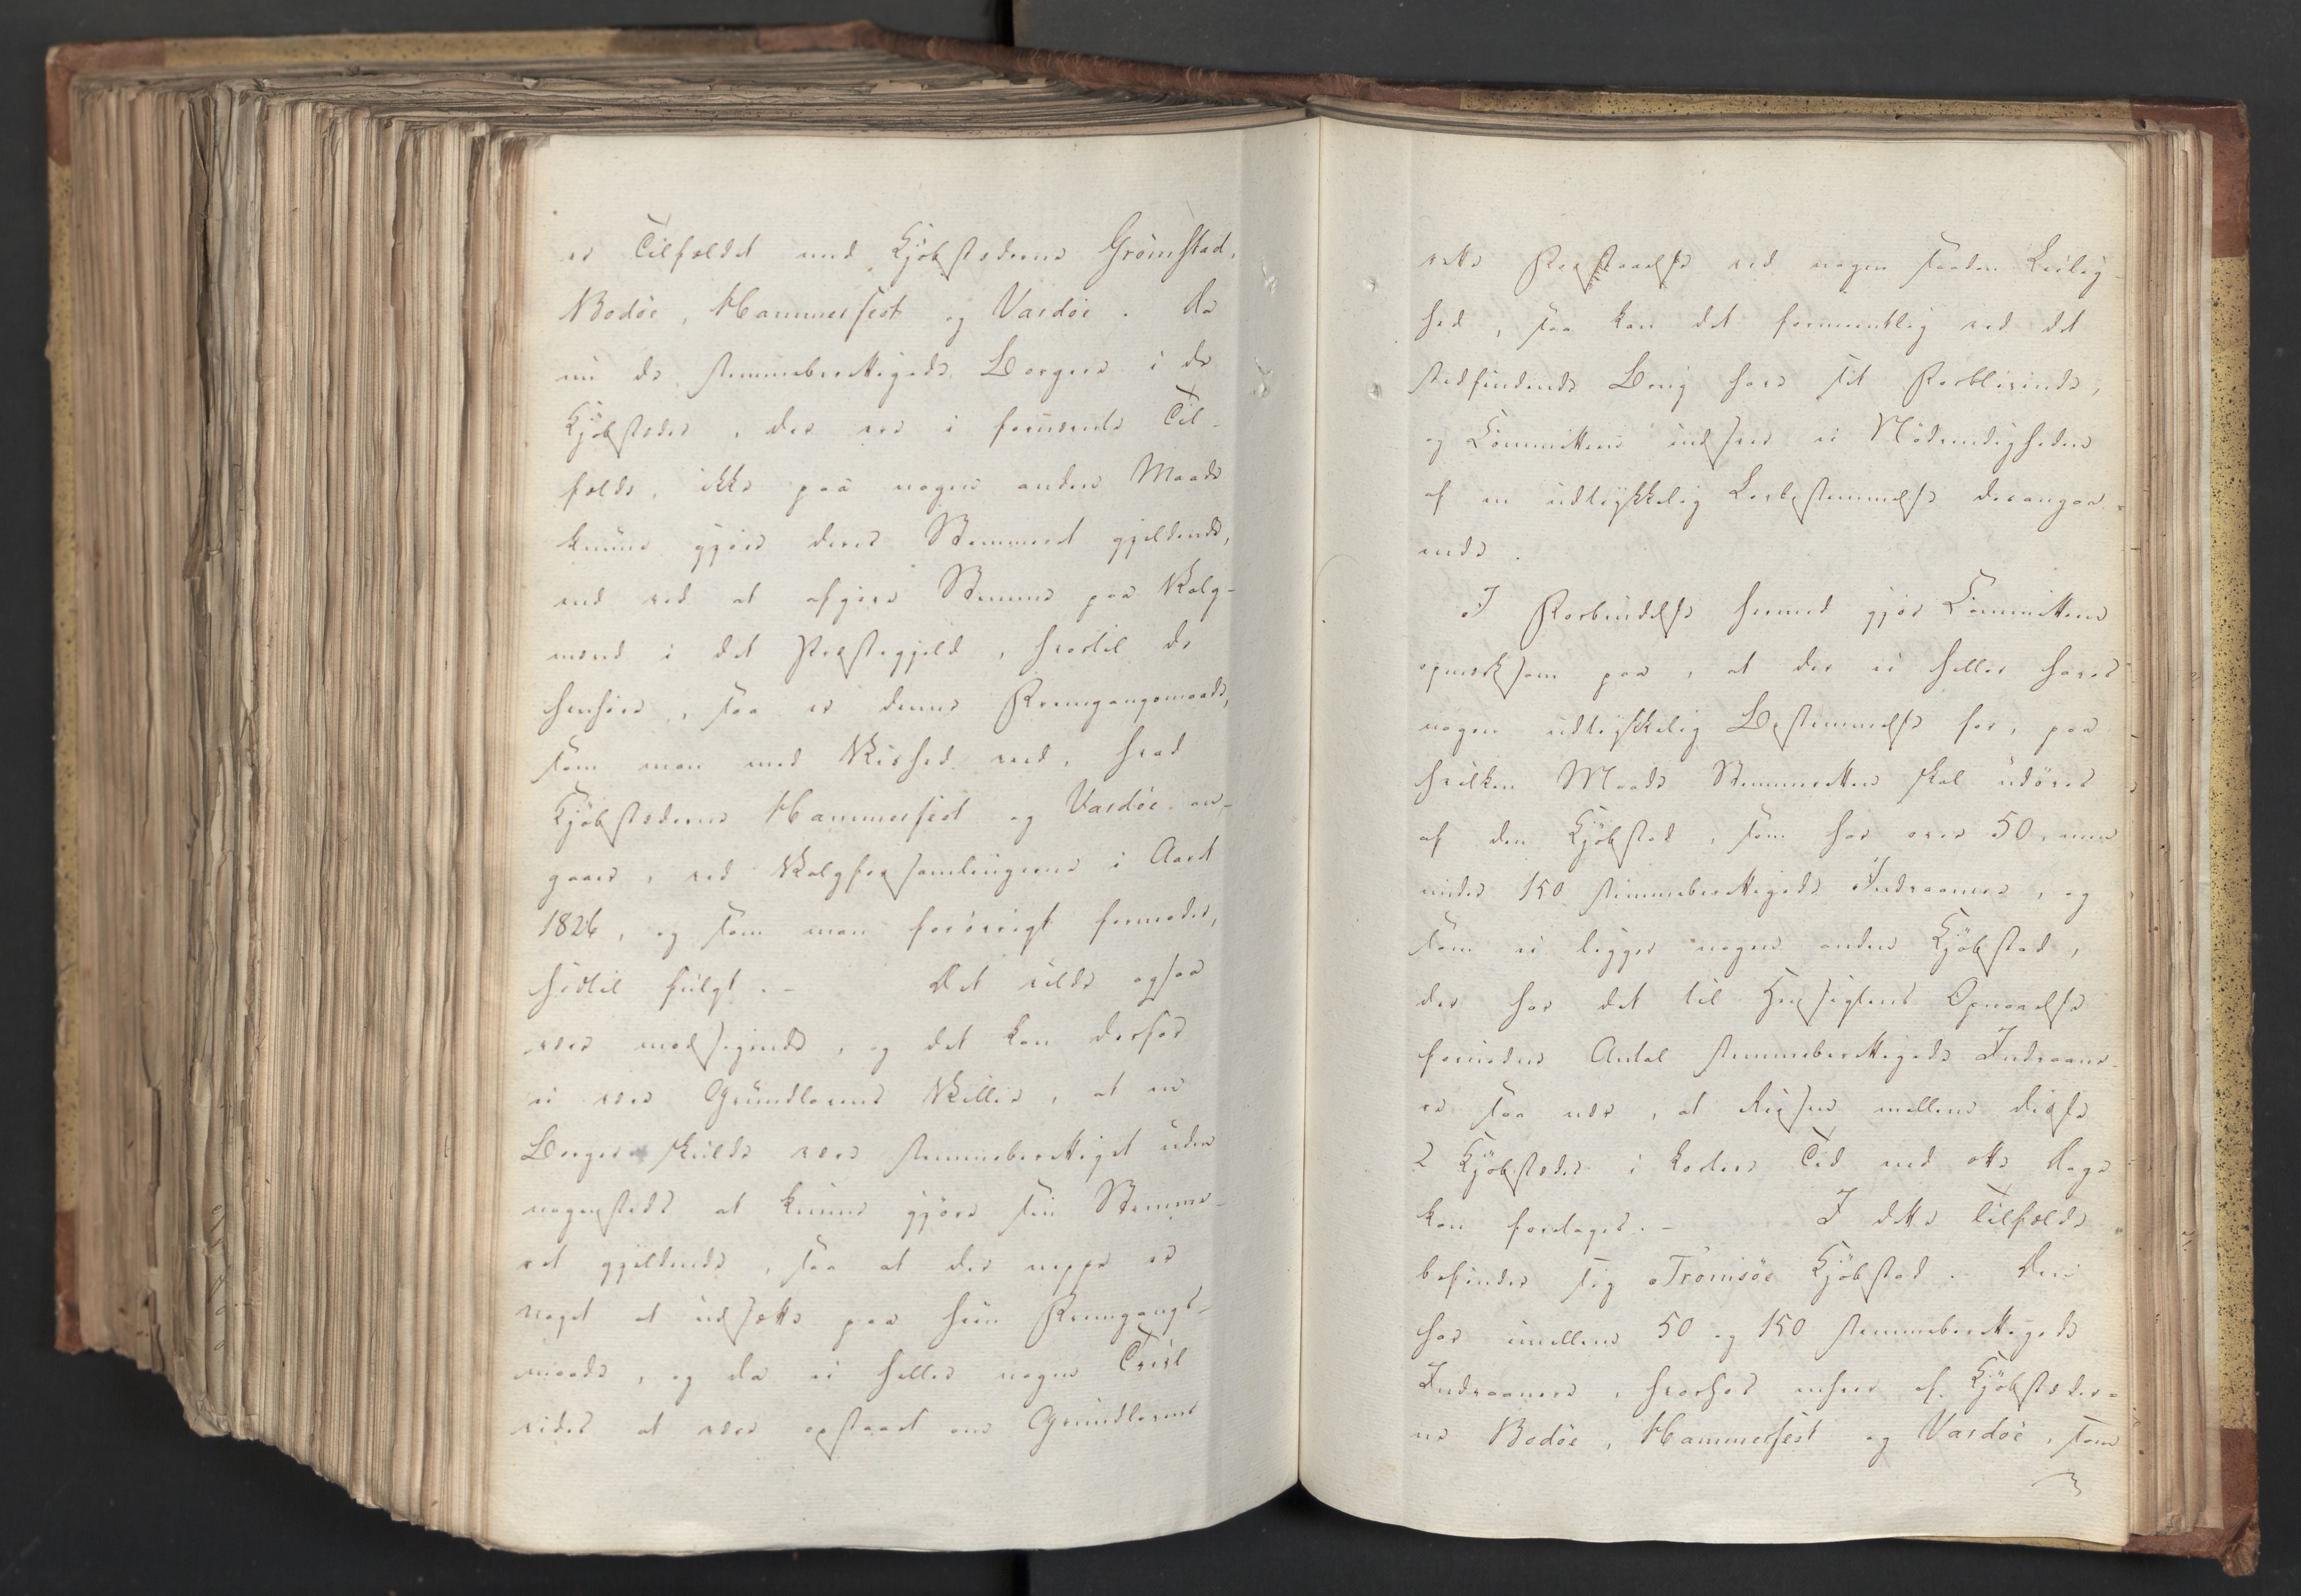 er Tilfældet med Kjøbstæderne Grimstad,
Bodöe, Hammerfest og Vardöe. Da
nu de stemmeberettigede Borgere i de
Kjøbstæder, der ere i fornævnte Til-
fælde, ikke paa nogen anden Maade
kunne gjöre deres Stemmeret gjeldende,
end ved at afgive Stemme paa Valg-
mænd i det Præstegjeld, hvortil de
henhöre, saa er denne Fremgangsmaade,
som man med Vished veed, hvad
Kjøbstæderne Hammerfest og Vardöe an-
gaaer, ved Valgforsamlingerne i Aaret
1826, og som man forövrigt formoder,
hidtil fulgt. - Det vilde ogsaa
være modsigende, og det kan derfor
ei være Grundlovens Villie, at en
Borger skulde være stemmeberettiget uden
nogensteds at kunne gjöre sin Stemme-
ret gjeldende, saa at der neppe er
noget at udsætte paa hiin Fremgangs-
maade, og da ei heller nogen Tvivl
vides at være opstaaet om Grundlovens
rette Forstaaelse ved nogen saadan Leilig-
hed, saa kan det formeentlig ved det
stedfindende Brug have sit Forblivende,
og Committeen indseer ei Nödvendigheden
af en udtrykkelig Lovbestemmelse derangaa-
ende.
I Forbindelse hermed gjör Committeen
opmærksom paa, at der ei heller haves
nogen udtrykkelig Bestemmelse for, paa
hvilken Maade Stemmeretten skal udöves
af den Kjøbstad, som har over 50, men
under 150 stemmeberettigede Indvaanere, og
som ei ligger nogen anden Kjøbstad,
der har det til Hensigtens Opnaaelse
fornödne Antal stemmeberettigede Indvaane-
re saa nær, at Reisen mellem disse
2 Kjøbstæder i kortere Tid end otte Dage
kan foretages. - I dette Tilfælde
befinder sig Tromsöe Kjøbstad. Den
har imellem 50 og 150 stemmeberettigede
Indvaanere, hvorhos enhver af Kjøbstæder-
ne Bodöe, Hammerfest og Vardöe, som